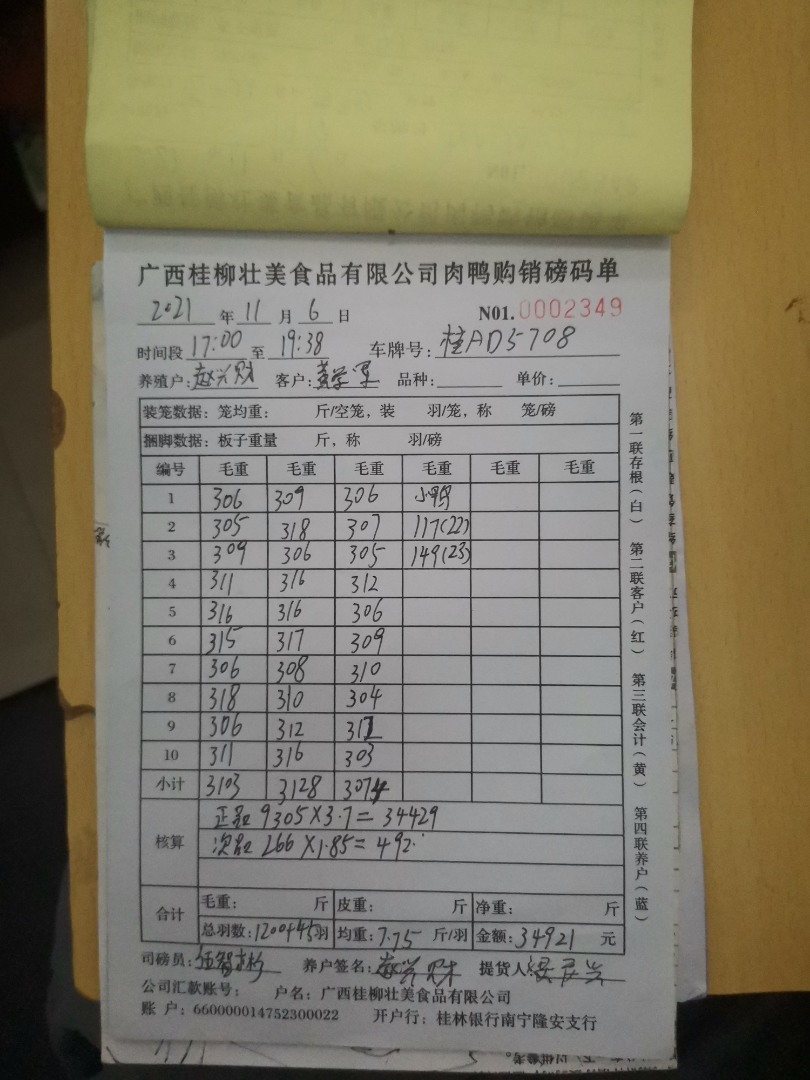 广西桂柳壮美食品有限公司肉鸭购销磅码单
2021 年 11 月 6 日 N01.0002349
时间段 17:00 至 19:38 车牌号: 桂AD5708
养殖户: 赵兴财 客户: 黄学军 品种: 单价:
装笼数据: 笼均重: 斤/空笼, 装 羽/笼, 称 笼/磅
捆脚数据: 板子重量 斤, 称 羽/磅
编号 毛重 毛重 毛重 毛重 毛重 毛重
1 306 309 306 小鸭
2 305 318 307 117(22)
3 309 306 305 149(23)
4 311 316 312
5 316 316 306
6 315 317 309
7 306 308 310
8 318 310 304
9 306 312 312
10 311 316 303
小计 3103 3128 3074
核算
正品 9305×3.7=34429
次品 266×1.85=492.
合计
毛重: 斤 皮重: 斤 净重: 斤
总羽数: 1200+45羽 均重: 7.75 斤/羽 金额: 34921 元
司磅员: 养户签名: 赵兴财 提货人
公司汇款账号: 户名: 广西桂柳壮美食品有限公司
账 户: 660000014752300022 开户行: 桂林银行南宁隆安支行
第一联存根(白) 第二联客户(红) 第三联会计(黄) 第四联养户(蓝)